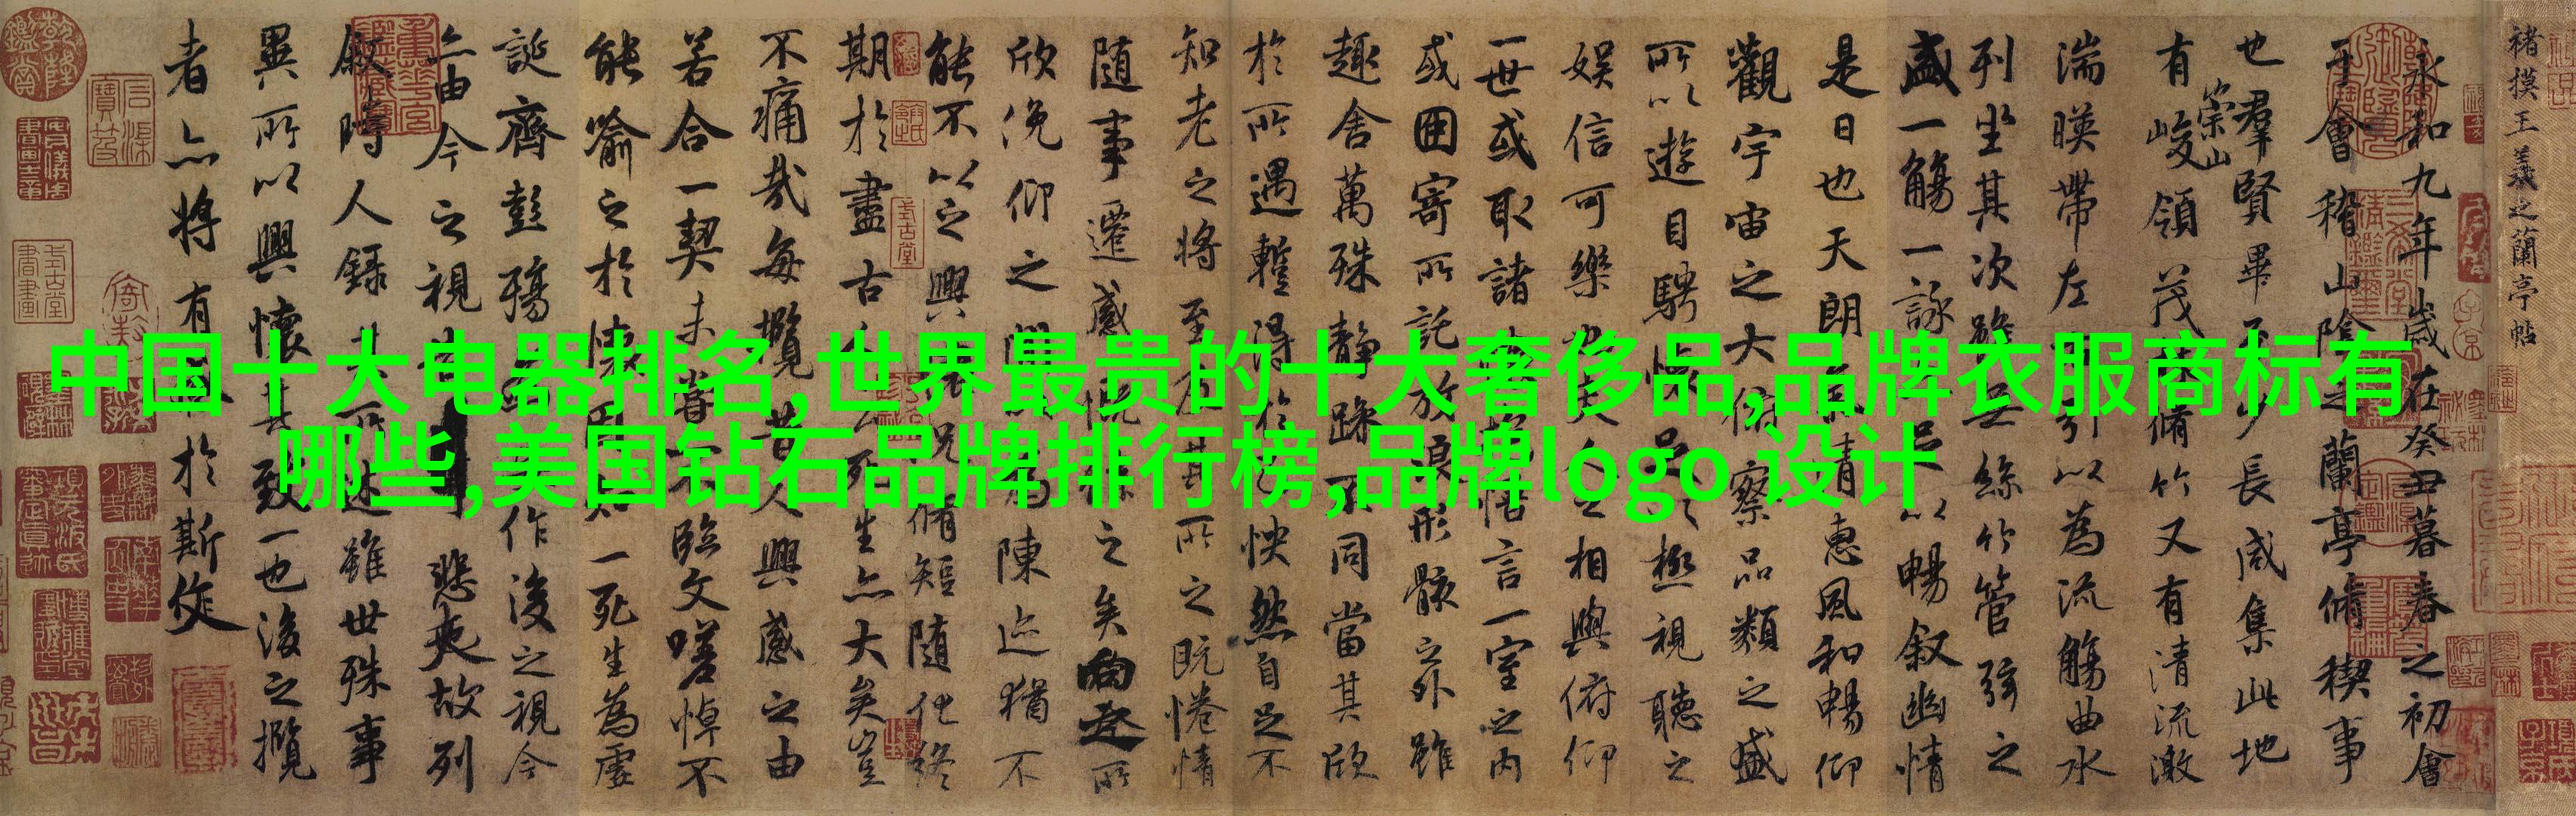 中国十大电器排名,世界最贵的十大奢侈品,品牌衣服商标有
哪些,美国钻石品牌排行榜,品牌logo设计
褚摸王羲之蘭亭帖
永和九年歲在癸丑暮春之初會
于會稽山陰之蘭亭脩稧事
也羣賢畢至少長咸集此地
有崇山峻領茂脩竹又有清流激
湍暎帶左引以為流觴曲水
列坐其次雖無絲竹管弦之
盛一觴一詠足以暢叙幽情
是日也天朗清惠風和暢仰
觀宇宙之大俯察品類之盛
所以遊目騁懷足以極視聽之
娛信可樂也夫人之相與俯仰
一世或取諸悟言一室之內
或因寄所託放浪形骸之外雖
趣舍萬殊靜躁不同當其欣
於所遇蹔得於己怏然自足不
知老之將至及其所之既惓情
隨事遷感慨係之矣向之所
欣俛仰之閒以為陳迹猶不
能不以之興懷況脩短隨化終
期於盡古人云死生亦大矣豈
不痛哉每攬昔人興感之由
若合一契未嘗不臨文嗟悼不
能喻之於懷固知一死生為虛
誕齊彭殤為妄作後之視今
亦由今之視昔悲夫故列
叙時人錄其所述雖世殊事
異所以興懷其致一也後之攬
者亦將有感於斯文